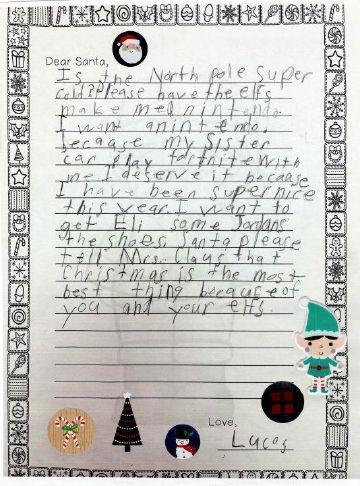 Dear Santa,
Is the North pole super
cold? Please have the elfs
make me a nintendo
I want a nintendo.
becaase my Sister
can play fortnite with
me I deserve it becaase
I have been super nice
this year. I want to
get Eli some Jordans
the shoes. Santa please
tell Mrs. Claus that
Christmas is the most
best thing because of
you and your elfs.
Love,
Lucas